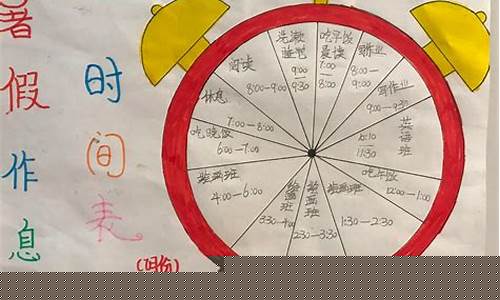 暑假作息
时间表
洗漱
9:00
9:30
吃早饭
晨读
7:00
8:00
8:00-
9:00
写作业
9:00-9:30
英语
班
10:10
11:30
吃午饭
12:00-1:00
1:30-2:30
2:30-3:30
3:30-4:00
绘画班
4:00-6:00
吃晚饭
6:00-7:00
休息
7:00-8:00
阅读
8:00-9:00